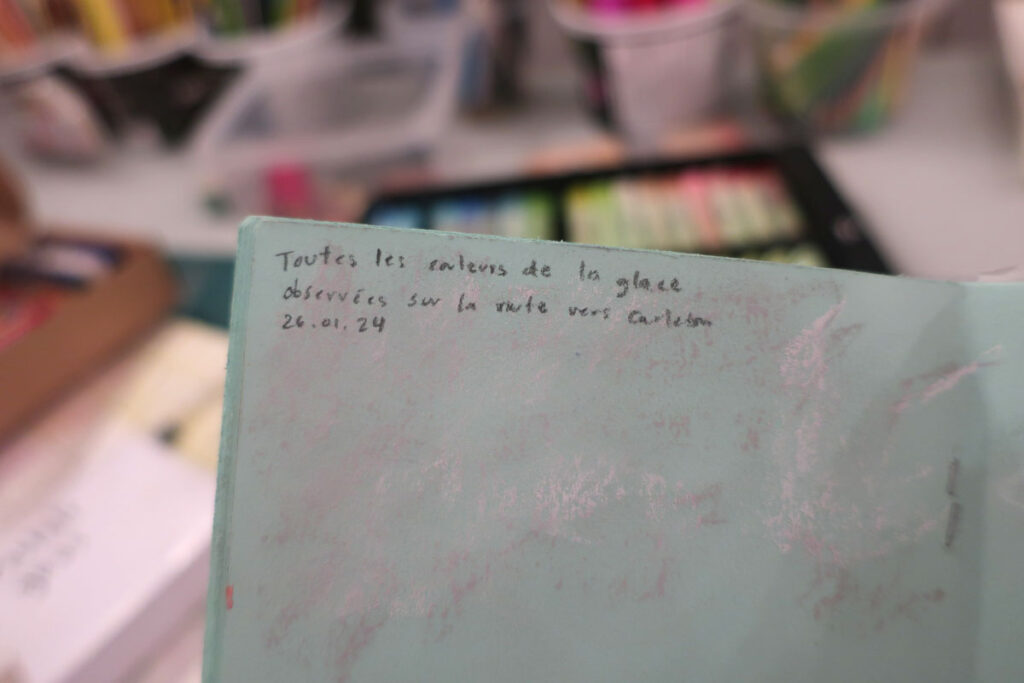 Toutes les couleurs de la glace
observées sur la route vers Carleton
26.01.24